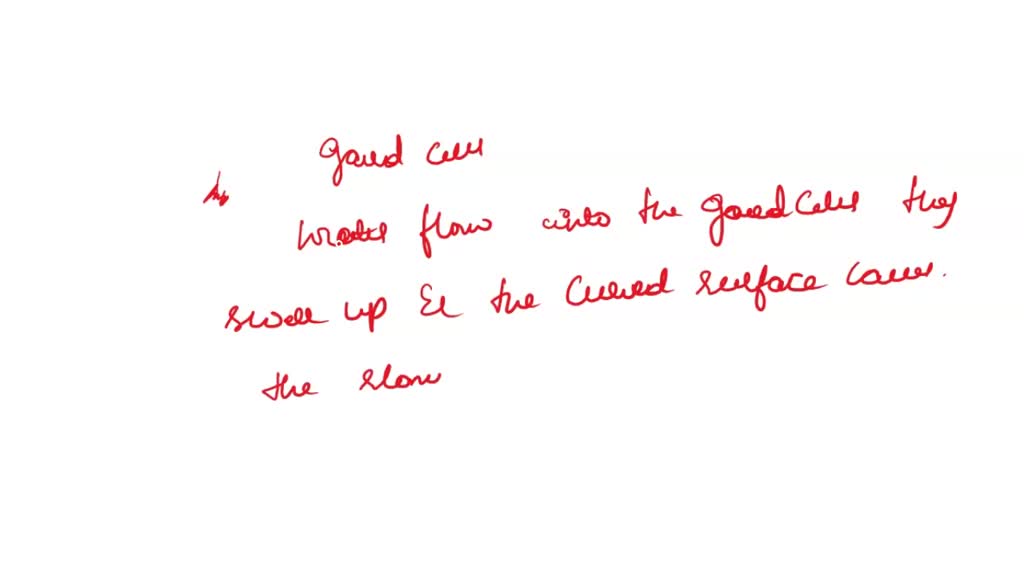 guard cell
Ans
water flow into the guard cells they
swell up & the curved surface causes.
the stom